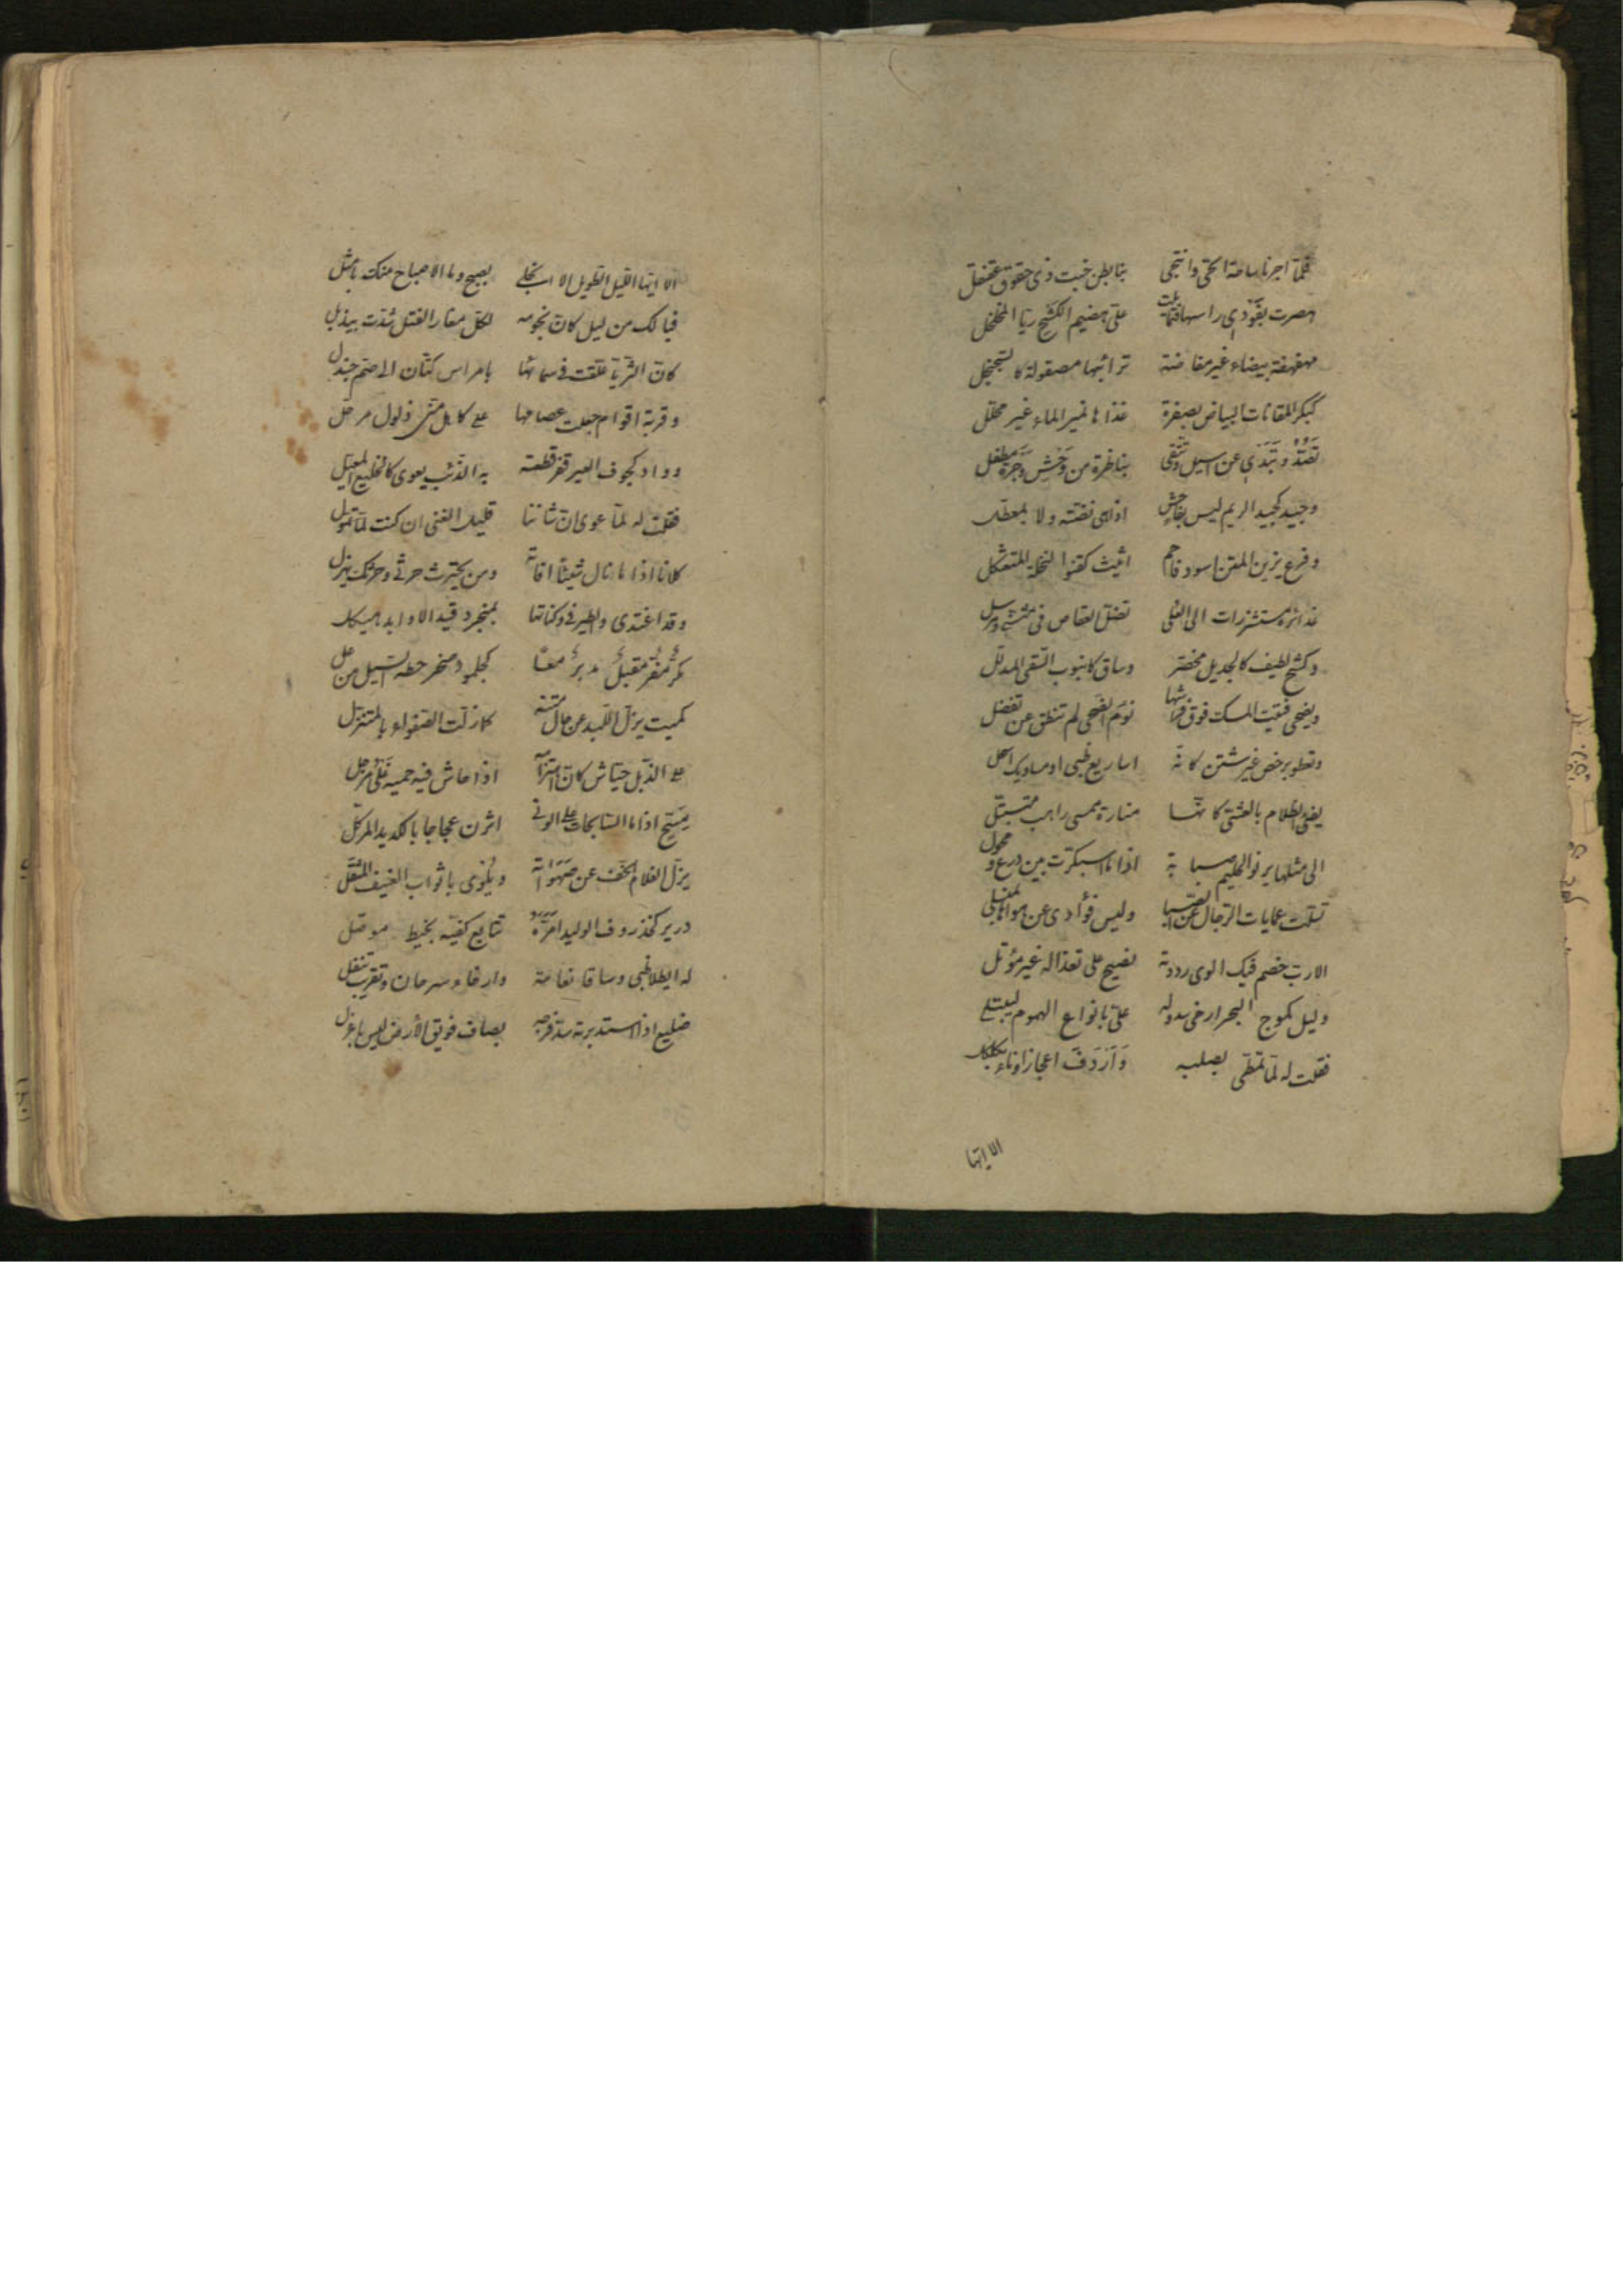 فلما اجرنا ساحة الحى وانتحى بنا بطن خبت ذى حقوق عقنقل
هصرت بفَوْدَى راسها فتمايلت علىّ هضيم الكشح ريّا المخلخل
مهفهفة بيضاء غير مفاضة ترائبها مصقولة كالسجنجل
كبكر المقانات البياض بصفرة غذاها نمير الماء غير محلّل
تَصُدُّ وتَبْدَى عن اسيل وتتّقى بناظرة من وَحْشِ وَجْرَةَ مطفل
وجيد كجيد الريم ليس بفاحش اذا هى نصّته ولا بمعطّل
وفرع يزين المتن اسود فاحم اثيث كقنو النخلة المتعثكل
غدائره مستشزرات الى العلى تضلّ العقاص فى مثنّى ومرسل
وكشح لطيف كالجديل مخصّر وساق كانبوب السّقى المدلّل
ويضحى فتيت المسك فوق فراشها نؤم الضحى لم تنطق عن تفضل
وتعطو برخص غير شثن كانّه اساريع ظبى او مساويك اسحل
يضئ الظلام بالعشىّ كانّها منارة ممسى راهب متبتّل
الى مثلها يرنو الحليم صبابة اذا ما اسبكرّت بين درع ومجول
تسلّت عمايات الرّجال عن الصّبا وليس فؤادى عن هواها بمنسلى
الا ربّ خصم فيك الوى رددته نصيح على تعذاله غير مؤتل
وليل كموج البحر ارخى سدوله علىّ بانواع الهموم ليبتلى
فقلت له لمّا تمطّى بصلبه وَاَرْدَفَ اعجازا وناء بكلكل
الا ايّها
الا ايّها اللّيل الطّويل الا انجلى بصبح وما الاصباح منك بامثل
فيا لك من ليل كانّ نجومه لكلّ مغار الفتل شدّت بيذبل
كانّ الثّريّا علّقت فى سمائها بامراس كتّان الى صمّ جندل
وقربة اقوام جعلت عصامها على كاهل منّى ذلول مرحّل
وواد كجوف العير قفر قطعته به الذّئب يعوى كالخليع المعيّل
فقلت له لمّا عوى انّ شاننا قليل الغنى ان كنت لمّا تموّل
كلانا اذا ما نال شيئًا افاته ومن يحترث حرثى وحرثك يهزل
وقد اغتدى والطير فى وكناتها بمنجرد قيد الاوابد هيكل
مكرّ مفرّ مقبل مدبر معًا كجلمود صخر حطه السّيل من عل
كميت يزلّ اللّبد عن حال متنه كما زلّت الصّفواء بالمتنزّل
على الذّبل جيّاش كانّ اهتزامه اذا جاش فيه حميه غَلْىُ مرجل
مِسَحّ اذا ما السّابحات على الونى اثرن عجاجا بالكديد المركّل
يزلّ الغلام الخفّ عن صَهَوَاته ويُلْوى باثواب العنيف المثقّل
درير كخذروف الوليد اَمَرَّهُ تتابع كفّيه بخيط موصّل
له ايطلا ظبى وساقا نعامة وارخاء سرحان وتقريب تتفل
ضليع اذا استدبرته سدّ فرجه بضاف فويق الأرض ليس باعزل